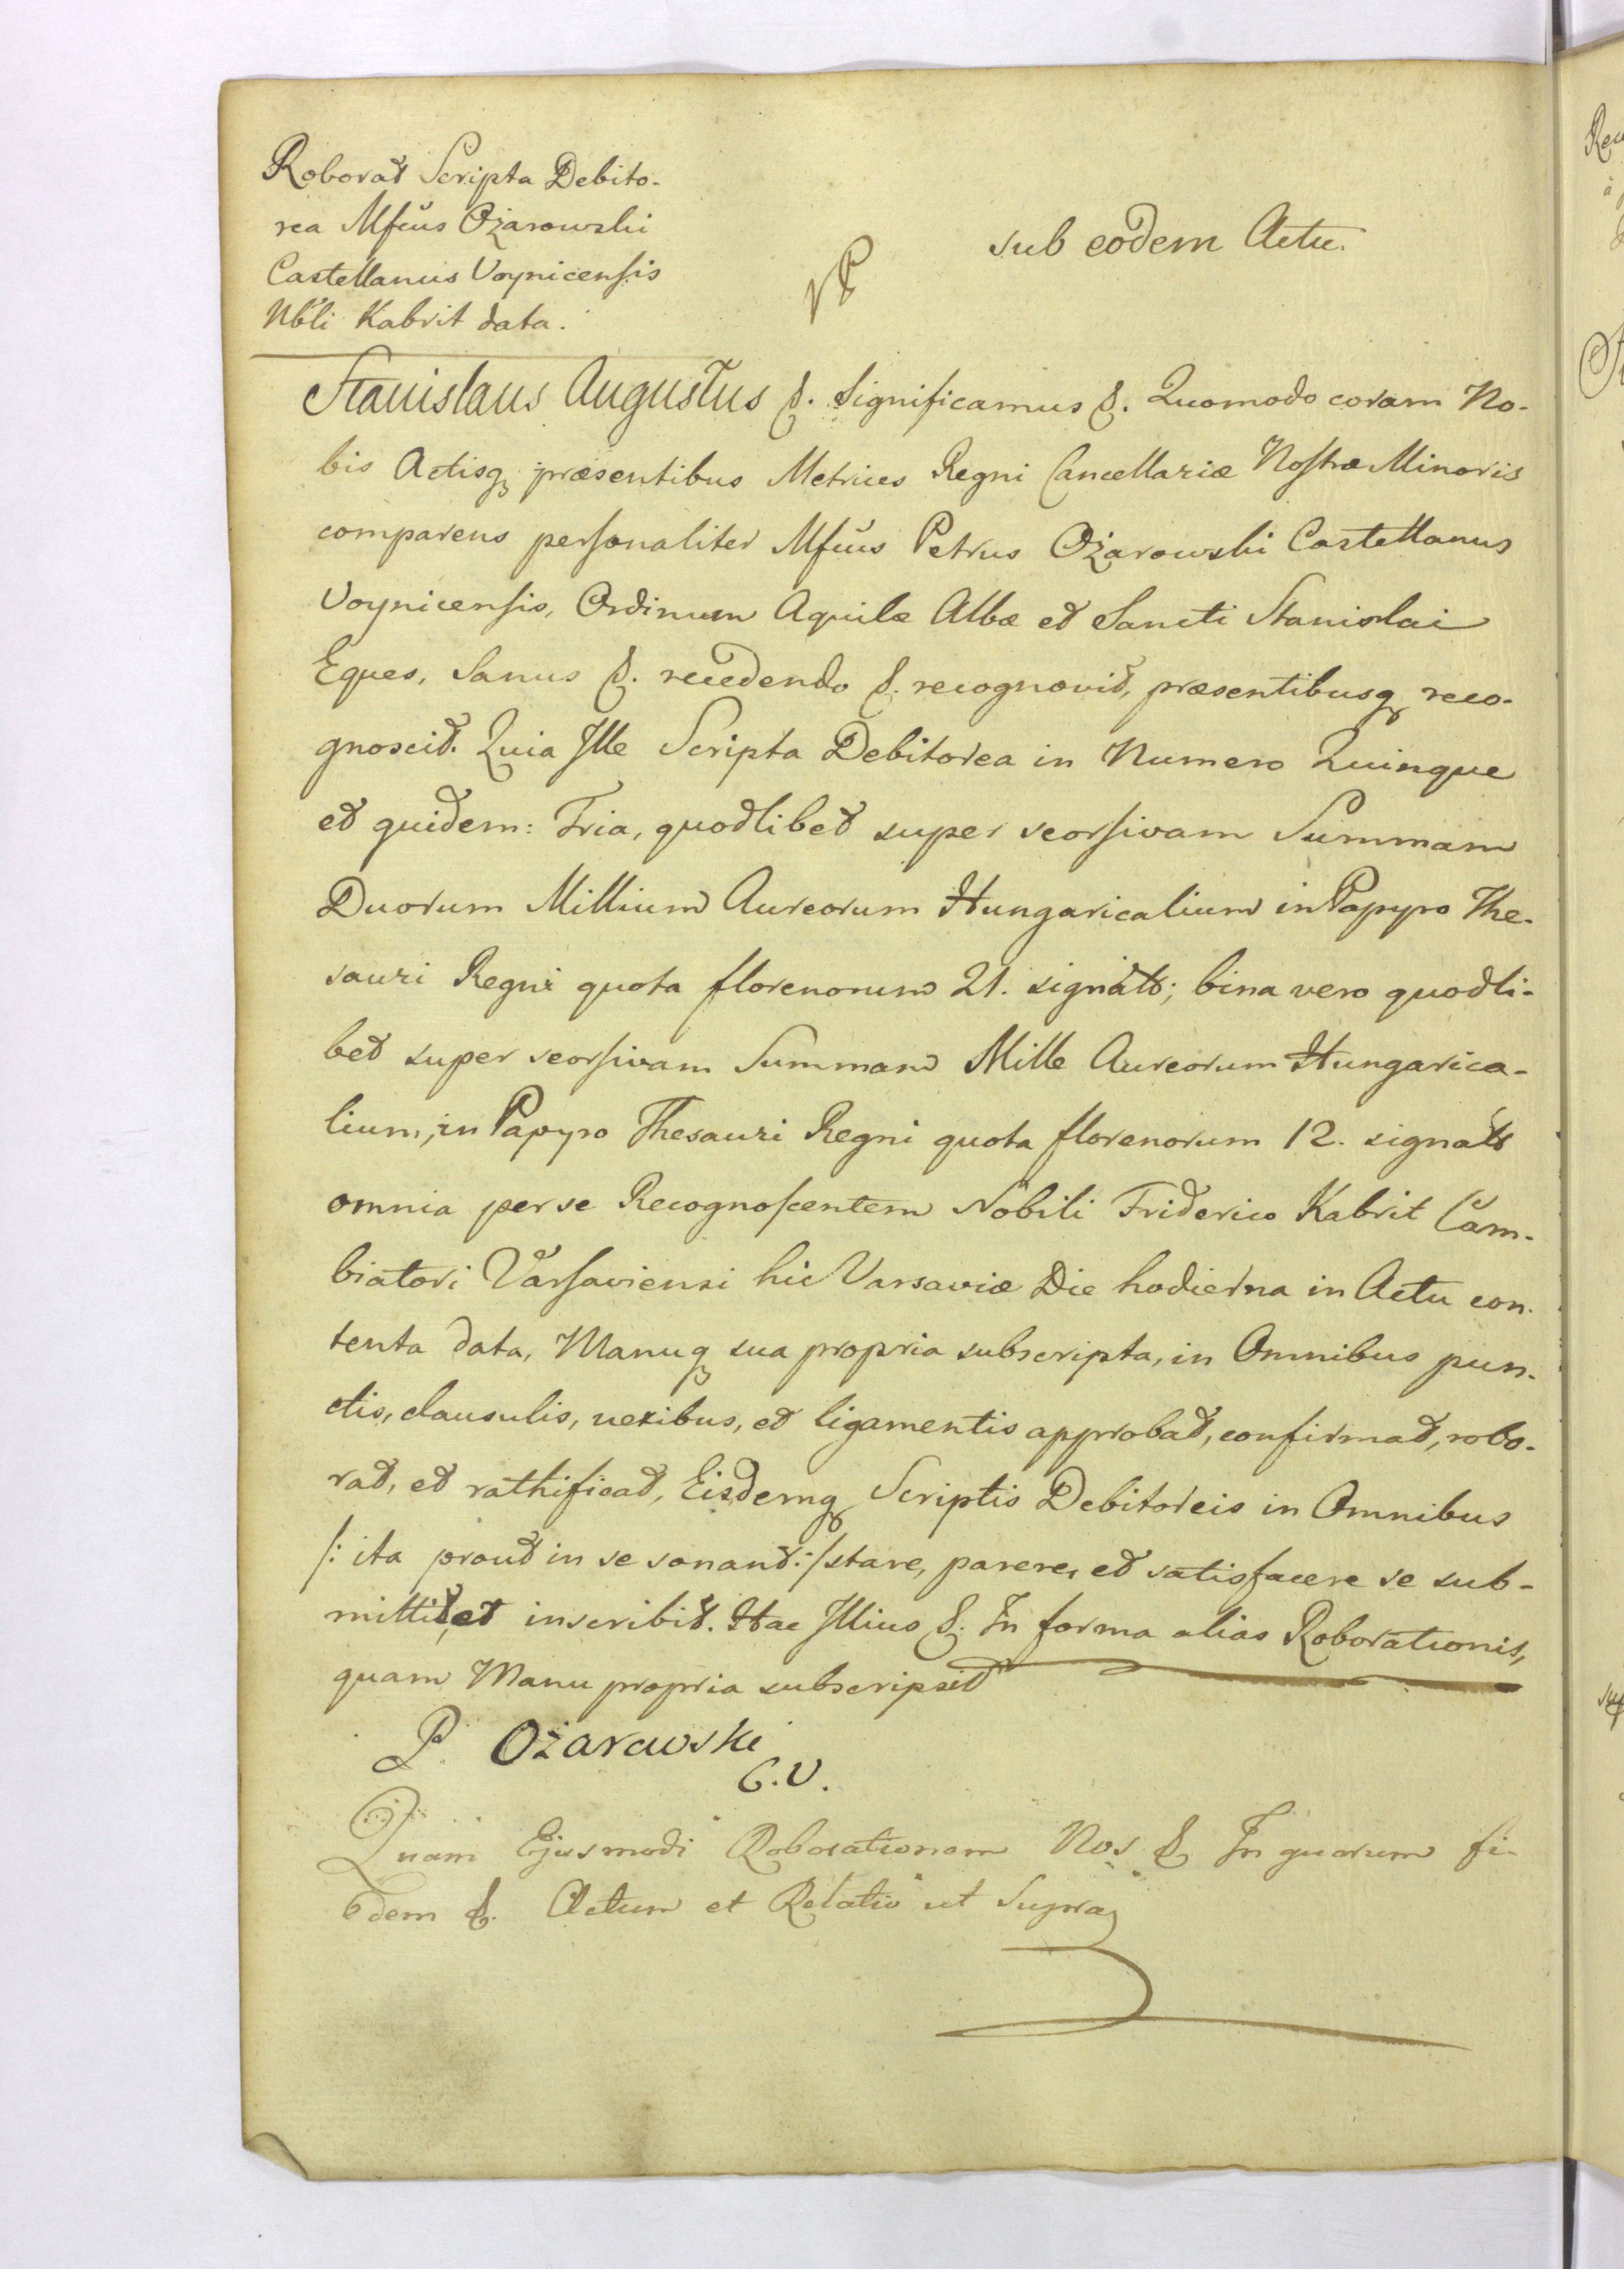 Roborat Scripta Debito-
rea Mfcus Ożarowski
Castellanus Voynicensis
Nbli Kabrit data.
sub eodem Actu.
Stanislaus Augustus &. Significamus &. Quomodo coram No-
bis Actisq præsentibus Metrices Regni Cancellariæ Nostræ Minoris
comparens personaliter Mfcus Petrus Ożarowski Castellanus
Voynicensis, Ordinum Aquilæ Albæ et Sancti Stanislai
Eques, Sanus &. recedendo &. recognovit, præsentibusq reco-
gnoscit. Quia Ille Scripta Debitorea in Numero Quinque
et quidem: Tria, quodlibet super seorsivam Summam
Duorum Millium Aureorum Hungaricalium in Papyro The-
sauri Regni quota florenorum 21. signats; bina vero quodli-
bet super seorsivam Summam Mille Aureorum Hungarica-
lium, in Papyro Thesauri Regni quota florenorum 12. signats
omnia per se Recognoscentem Nobili Friderico Kabrit Cam-
biatori Varsaviensi hic Varsaviæ Die hodierna in Actu con-
tenta data, Manuq sua propria subscripta, in Omnibus pun-
ctis, clausulis, nexibus, et ligamentis approbat, confirmat, robo-
rat, et rathificat, Eisdemq Scriptis Debitoreis in Omnibus
/: ita prout in se sonant :/ stare, parere, et satisfacere se sub-
mittit, et inscribit. Hac Illius &. In forma alias Roborationis,
quam Manu propria subscripsit
P. Ożarowski
C. V.
Quam Ejusmodi Roborationem Nos & In quorum fi-
dem &. Actum et Relatio ut Supra